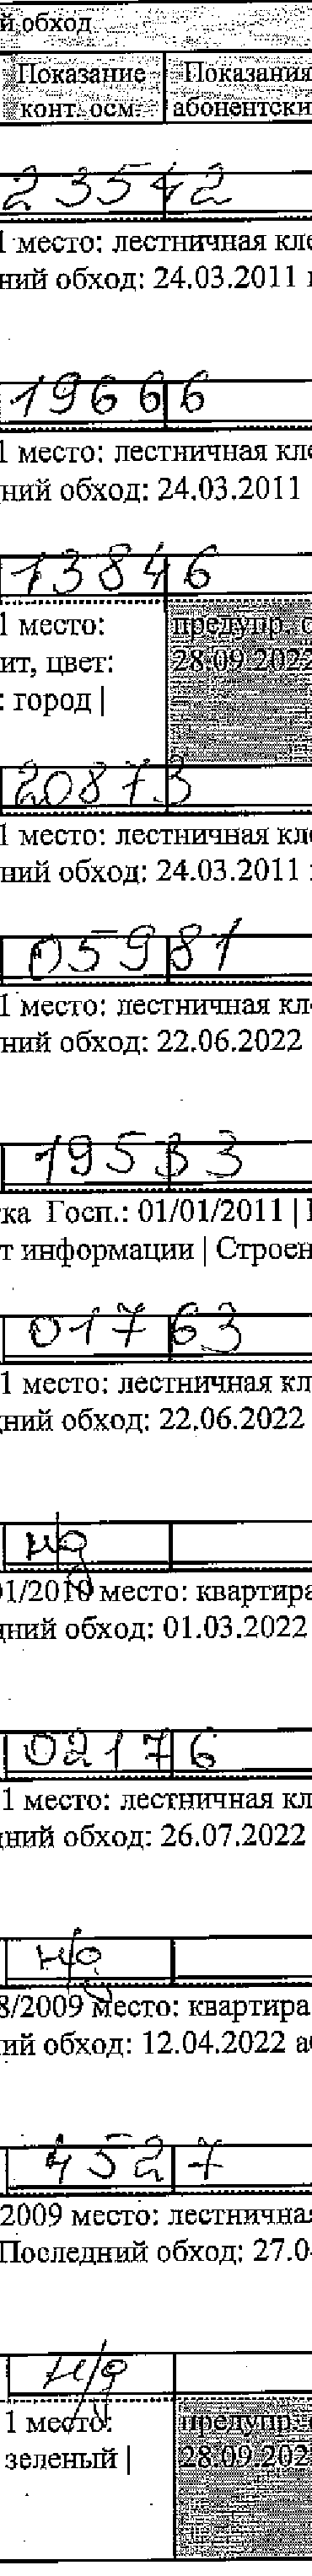 й обход
Показание Показания
конт. осм. абонентски
23542
1 место: лестничная кле
ний обход: 24.03.2011
19666
1 место: лестничная кле
ний обход: 24.03.2011
13846
1 место: предупр.
ит, цвет: 28.09.2022
: город |
20873
1 место: лестничная кле
ний обход: 24.03.2011
05981
1 место: лестничная кл
ний обход: 22.06.2022
19533
ка Госп.: 01/01/2011 |
т информации | Строен
01763
1 место: лестничная кл
ний обход: 22.06.2022
н/д
01/2010 место: квартира
дний обход: 01.03.2022
02176
1 место: лестничная кл
дний обход: 26.07.2022
н/д
8/2009 место: квартира
ий обход: 12.04.2022 а
4527
2009 место: лестничная
Последний обход: 27.0
н/д
1 место: предупр.
зеленый | 28.09.202